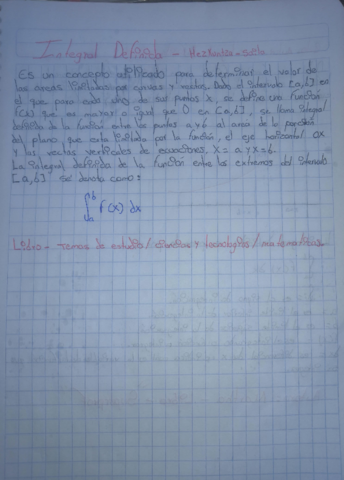 Integral Definida -
Es un concepto utilizado para determinar el valor de
las áreas limitadas por curvas y rectas. Dado el intervalo [a,b] en
el que para cada uno de sus puntos x, se define una función
f(x) que es mayor o igual que 0 en [a,b], se llama integral
definida de la función entre los puntos a y b al área de la porción
del plano que está limitada por la función, el eje horizontal OX
y las rectas verticales de ecuaciones, X = a y X = b.
La integral definida de la función entre los extremos del intervalo
[a,b] se denota como:
∫ₐᵇ f(x) dx
- temas de estudio / ciencias y tecnologías / matemáticas